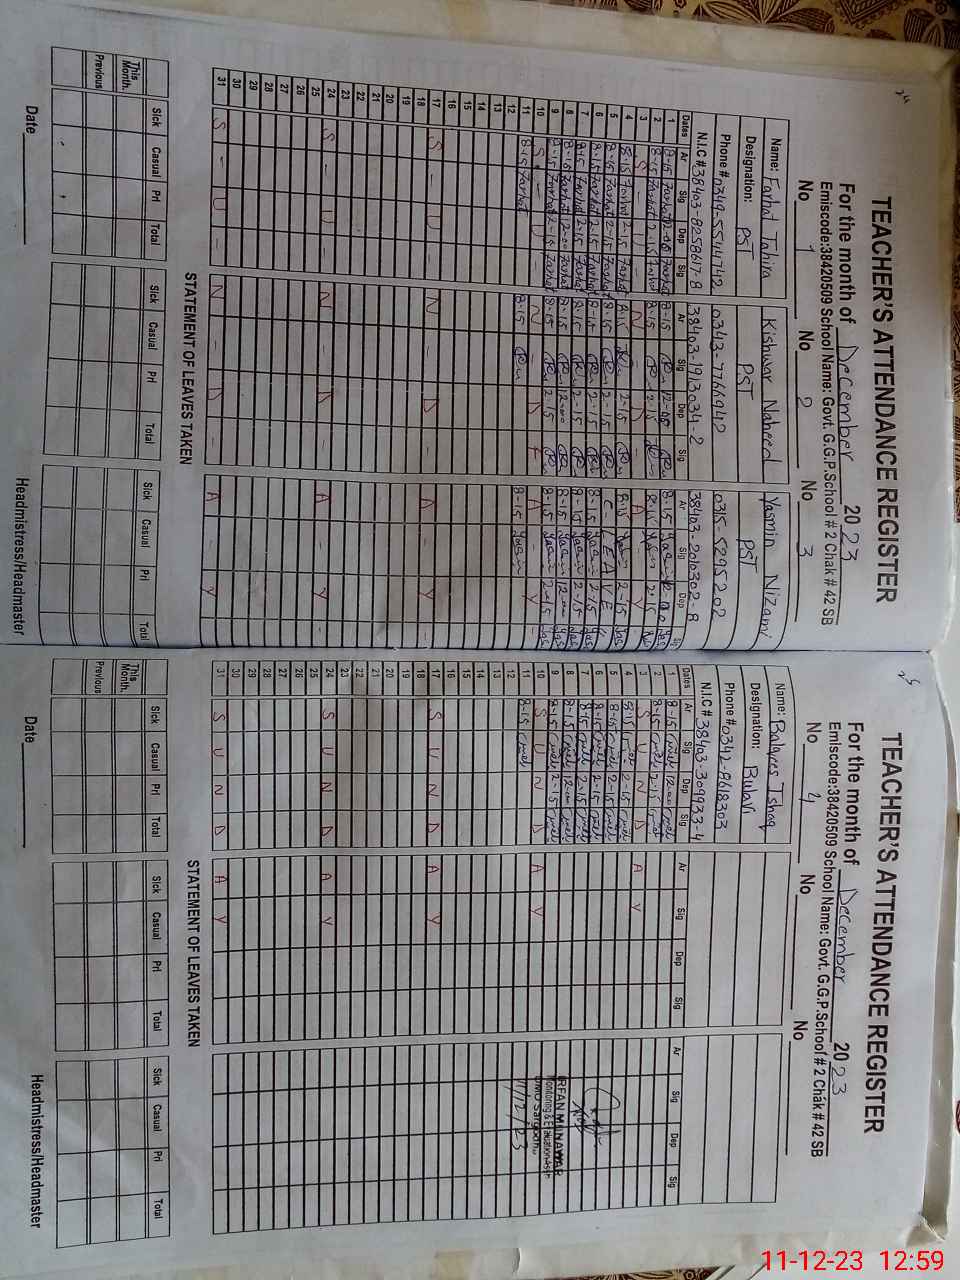 24
TEACHER'S ATTENDANCE REGISTER
For the month of December 2023
Emiscode:38420509 School Name: Govt. G.G.P.School # 2 Chak # 42 SB
No 1 No 2 No 3
Name: Farhat Tahira Kishwar Naheed Yasmin Nizami
Designation: PST PST PST
Phone # 0349-5544742 0343-7766942 0315-5295202
N.I.C # 38403-8258617-8 38403-1913034-2 38403-2010302-8
Dates Ar Sig Dep Sig Ar Sig Dep Sig Ar Sig Dep Sig
1 8-15 Farhat 12-00 Farhat 8-15 12-00 8-15 12-00
2 8-15 Farhat 2-15 8-15 2-15 8-15 2-15
3 S U N D A Y
4 8-15 Farhat 2-15 Farhat 8-15 2-15 8-15 2-15
5 8-15 Farhat 2-15 Farhat 8-15 2-15 C - LEAVE
6 8-15 Farhat 2-15 Farhat 8-15 2-15 8-15 2-15
7 8-15 Farhat 2-15 Farhat 8-15 2-15 8-15 2-15
8 8-15 Farhat 12-00 Farhat 8-15 12-00 8-15 12-00
9 8-15 Farhat 2-15 Farhat 8-15 2-15 8-15 2-15
10 S - U - N - D A - Y
11 8-15 Farhat 8-15 8-15
12
13
14
15
16
17 S - U - N - D - A - Y -
18
19
20
21
22
23
24 S - U - N - D - A - Y -
25
26
27
28
29
30
31 S - U - N - D - A - Y
STATEMENT OF LEAVES TAKEN
Sick Casual Prl Total Sick Casual Prl Total Sick Casual Prl Total
This Month.
Previous
Date Headmistress/Headmaster
25
TEACHER'S ATTENDANCE REGISTER
For the month of December 2023
Emiscode:38420509 School Name: Govt. G.G.P.School # 2 Chak # 42 SB
No 4 No No
Name: Balqees Ishaq
Designation: Bulavi
Phone # 0342-8618303
N.I.C # 38403-309933-4
Dates Ar Sig Dep Sig Ar Sig Dep Sig Ar Sig Dep Sig
1 8-15 12-00
2 8-15 2-15
3 S U N D A Y
4 8-15 2-15
5 8-15 2-15
6 8-15 2-15
7 8-15 2-15
8 8-15 12-00
9 8-15 2-15
10 S U N D A Y
11 8-15
12
13
14
15
16
17 S U N D A Y
18
19
20
21
22
23
24 S U N D A Y
25
26
27
28
29
30
31 S U N D A Y
IRFAN MUNAWAR
Monitoring & Evaluation Asstt
DMO Sargodha
11/12/23
STATEMENT OF LEAVES TAKEN
Sick Casual Prl Total Sick Casual Prl Total Sick Casual Prl Total
This Month.
Previous
Date Headmistress/Headmaster
11-12-23 12:59